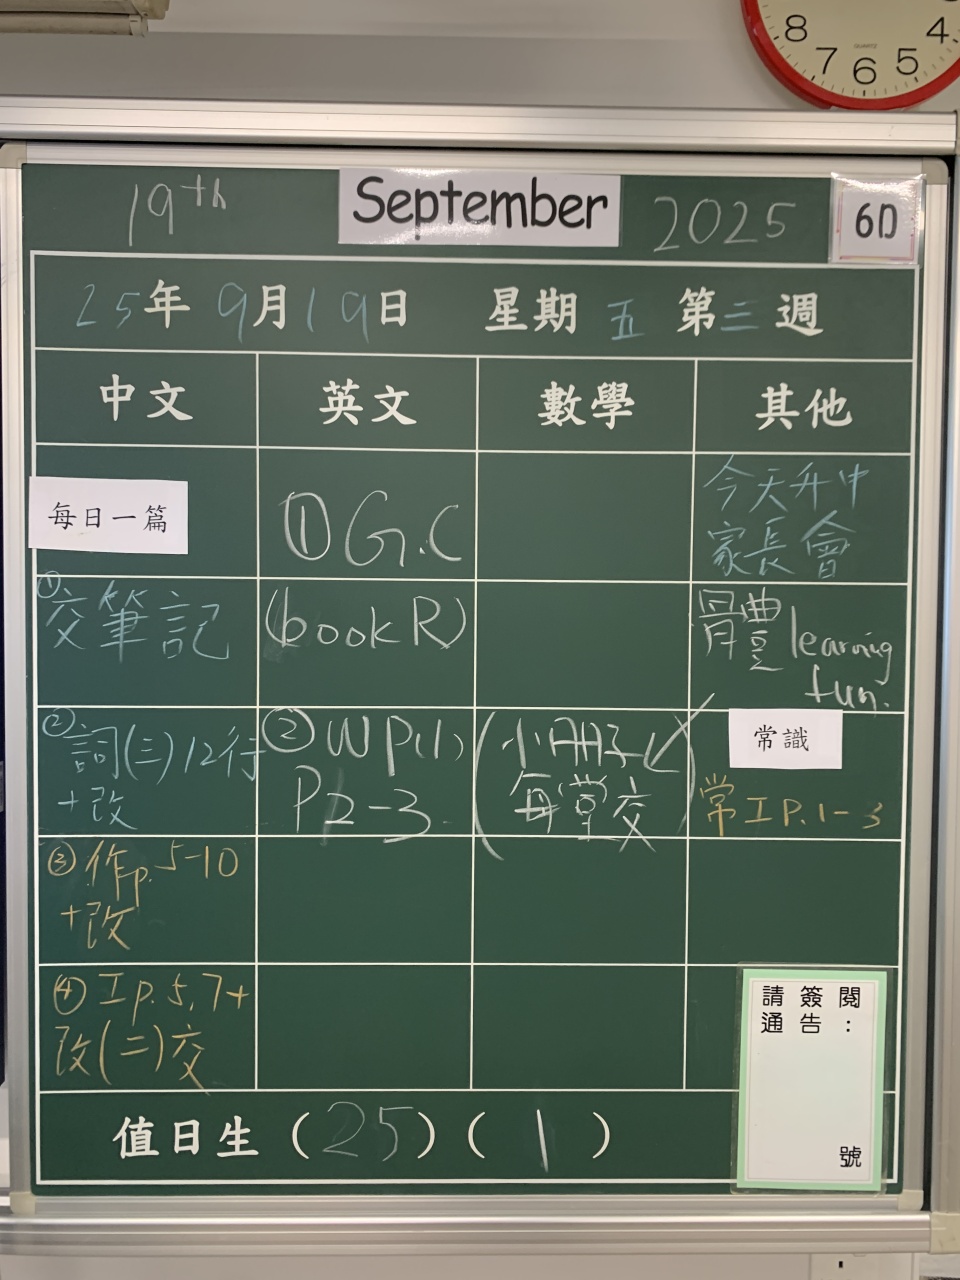 8 7 6 5 4
QUARTZ
19th September 2025 6D
25年9月19日 星期五 第三週
中文 英文 數學 其他
每日一篇
① G.C
今天升中
家長會
①交筆記
(book R)
體 learning
fun.
②詞(三)12行
+改
② WP(1)
P2-3
(小冊子✓
每堂交)
常識
常工P.1-3
③作p.5-10
+改
④工p.5,7+
改(二)交
請簽閱
通告:
號
值日生(25)(1)